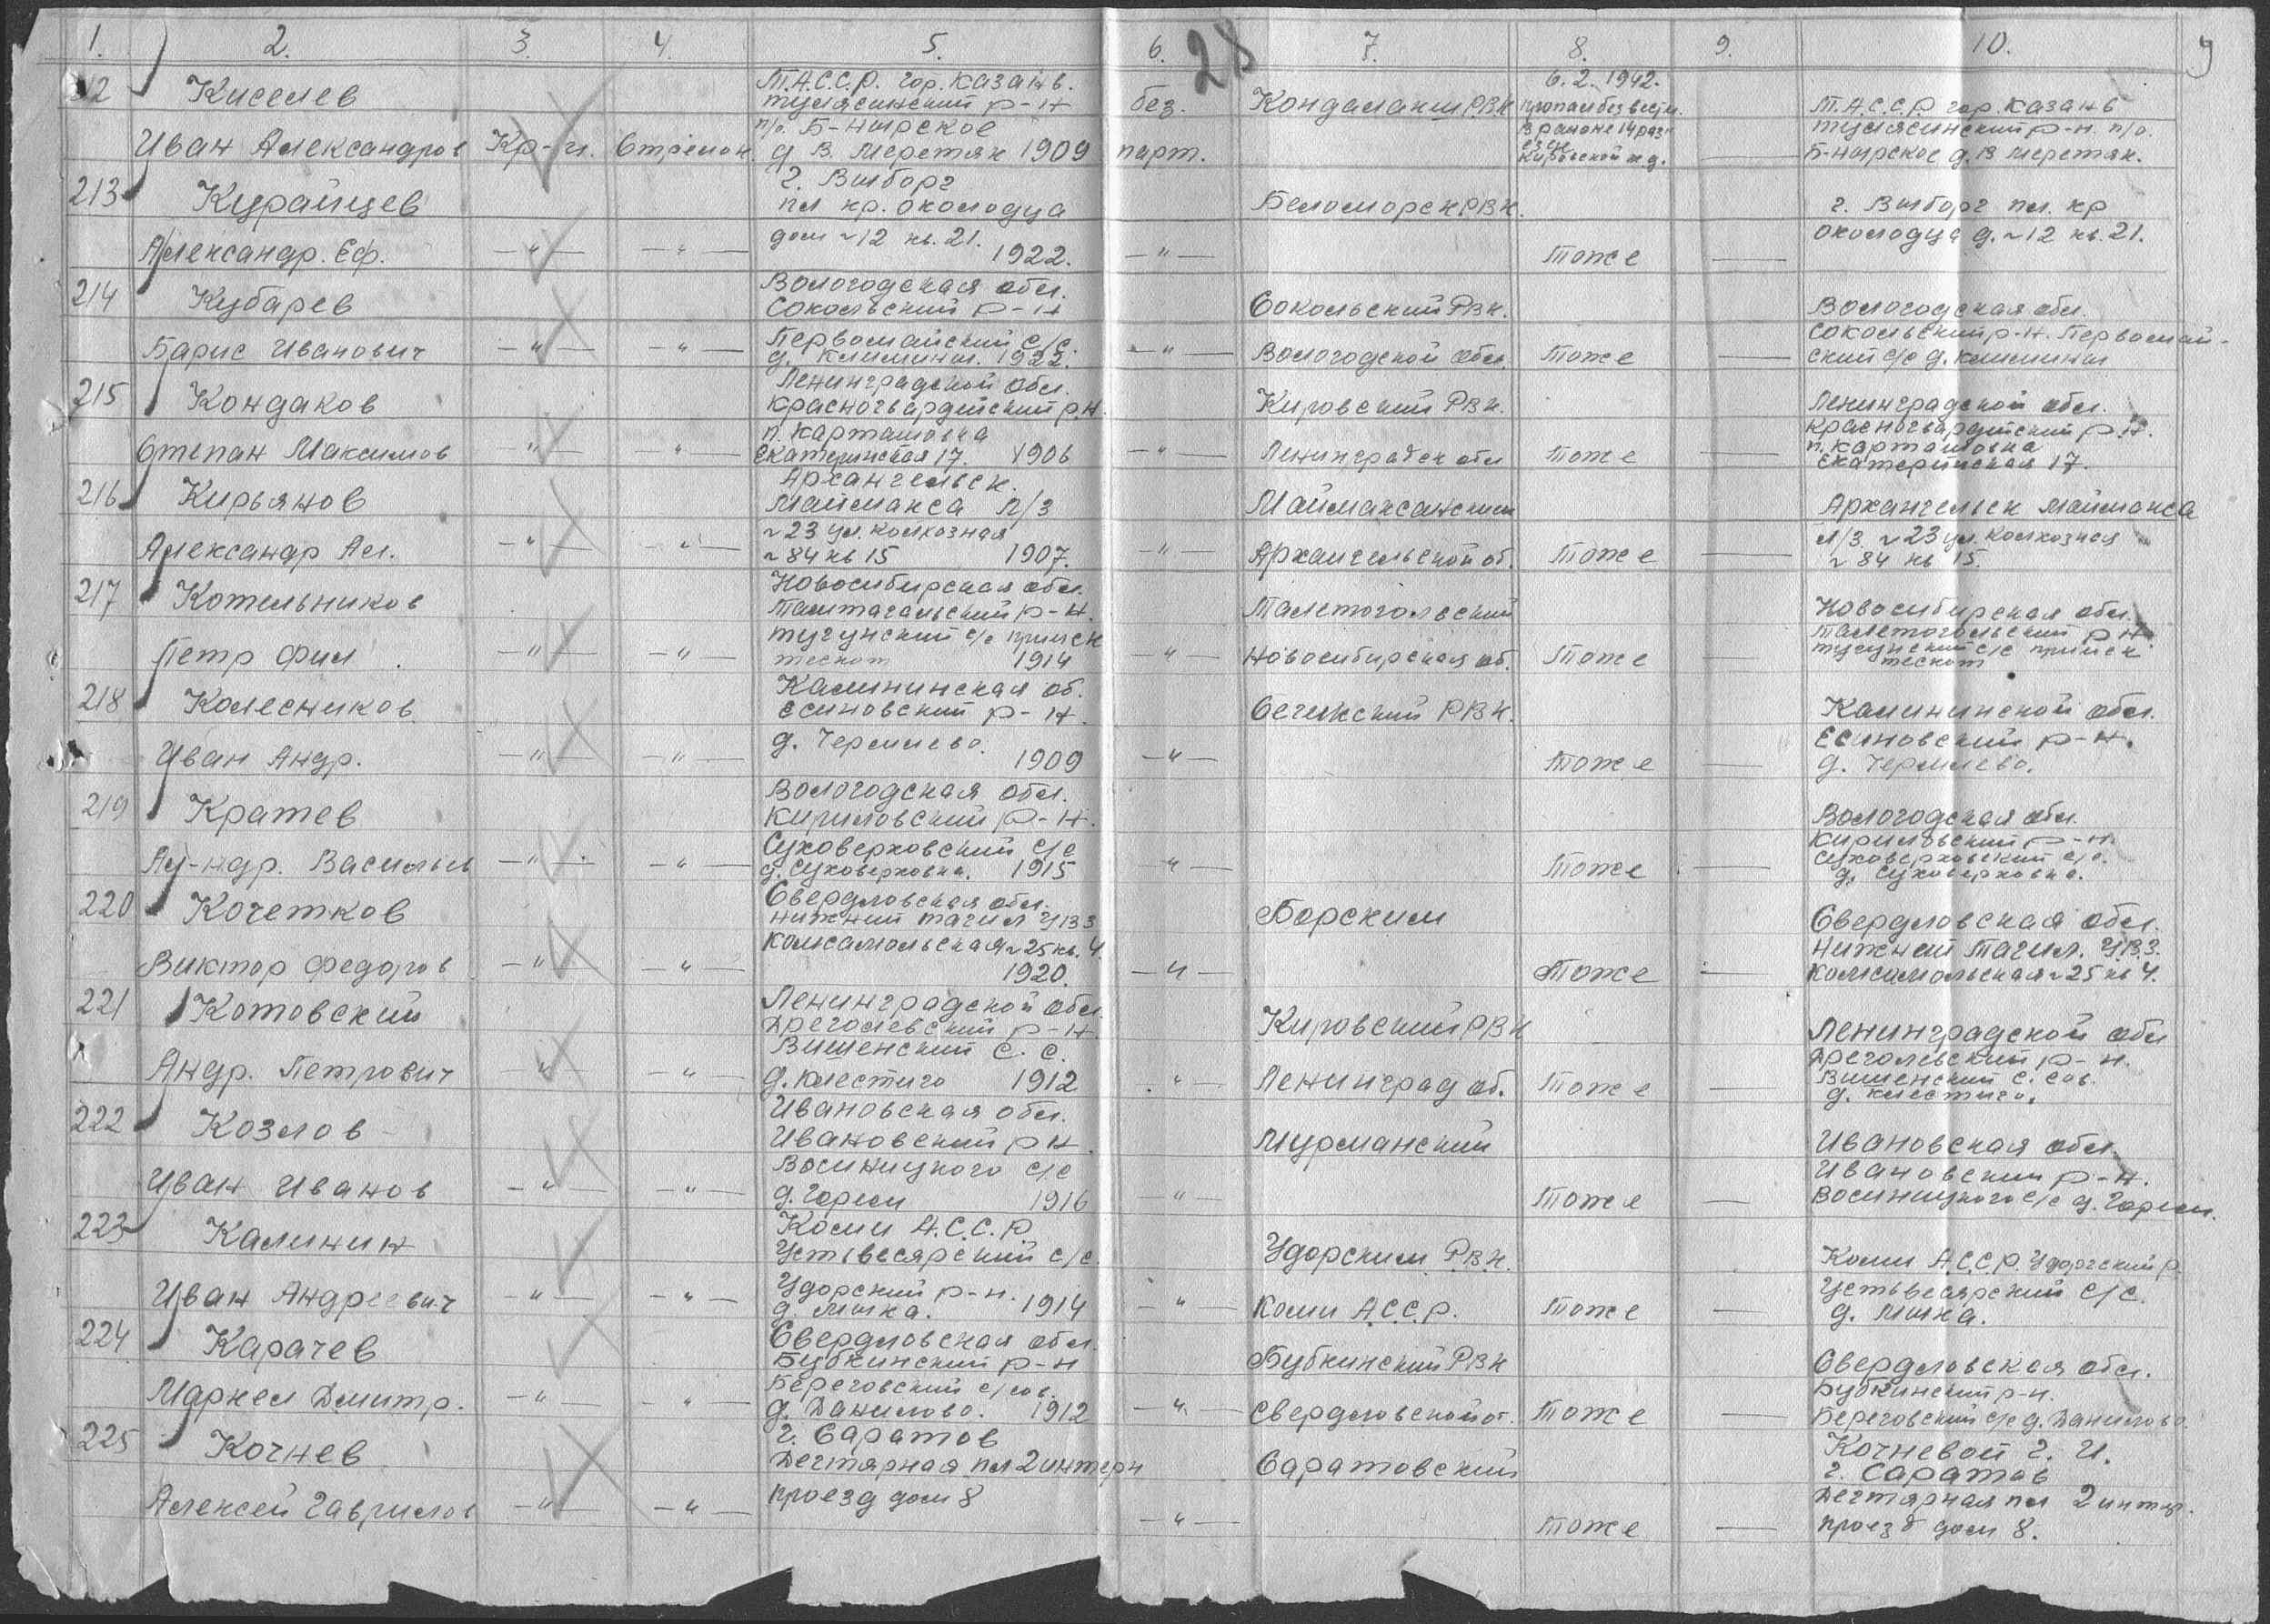 1. 2. 3. 4. 5. 6. 28 7. 8. 9. 10.
212 Киселев Т.А.С.С.Р. гор. Казань. без. Кондалакш РВК 6.2.1942. Т.А.С.С.Р. гор. Казань
тулясинский р-н пропал без вести тулясинский р-н. п/о.
п/о. Б-нырское в районе 14 раз-
Иван Александров Кр-ц. Стрелок д В. Меретяк 1909 парт. езд Кировской ж.д. — Б-нырское д. В меретяк.
213 Курайцев г. Выборг Беломорск РВК. г. Выборг пл. кр
пл кр. околодца околодца д. ~12 кв. 21.
Александр. Еф. —"— —"— дом ~12 кв. 21. 1922. —"— тоже —
214 Кубарев Вологодская обл. Сокольский РВК. Вологодская обл.
Сокольский р-н сокольский р-н. Первомай-
Барис Иванович —"— —"— Первомайский с/с. —"— Вологодской обл. тоже — ский с/с д. климины
д. климины. 1922.
215 Кондаков Ленинградской обл. Кировский РВК. Ленинградской обл.
красногвардейский р.н. красногвардейский р.н.
Степан Максимов —"— —"— п. карташовка —"— Ленинградск обл тоже — п. карташовка
Екатеринская 17. 1906 Екатеринская 17.
216 Кирьянов Архангельск. Маймаксанским Архангельск Маймакса
Маймакса л/з л/з ~23 ул. колхозная
Александр Ал. —"— —"— ~23 ул. колхозная —"— Архангельской об. тоже — ~84 кв 15.
~84 кв 15 1907.
217 Котельников Новосибирская обл. Талстогольский Новосибирская обл.
Талтагальский р-н. Талстогольский р-н
Петр Фил. —"— —"— тугунский с/с прииск —"— Новосибирская об. тоже — тугунский с/с прииск
тескот 1914 тескот
218 Колесников Калининская об. Сегежский РВК. Калининской обл.
Есиновский р-н. Есиновский р-н.
Иван Андр. —"— —"— д. Чермнево. 1909 —"— тоже — д. Чермнево.
219 Кратев Вологодская обл. Вологодская обл.
Кириловский р-н. Кириловский р-н
Ал-ндр. Васильев —"— —"— Суховерховский с/с —"— тоже — Суховерховский с/с.
д. Суховерховка. 1915 д. Суховерховка.
220 Кочетков Свердловская обл. Борским Свердловская обл.
нижний тагил УВЗ нижний Тагил. УВЗ.
Виктор Федоров —"— —"— комсамольская ~25 кв. 4. —"— тоже — комсамольская ~25 кв 4.
1920.
221 Котовский Ленинградской обл Кировский РВК Ленинградской обл
Дреголевский р-н. дрегольевский р-н.
Андр. Петрович —"— —"— Вишенский с. с. —"— Ленинград об. тоже — Вишенский с. сов.
д. клестиго 1912 д. клестиго.
222 Козлов Ивановская обл. Мурманский Ивановская обл.
Ивановский р н Ивановским р-н.
Иван Иванов —"— —"— Восиницкого с/с —"— тоже — Восиницкого с/с д. Горели.
д. Горели 1916
223 Калинин Коми А.С.С.Р. Удорским РВК. Коми А.С.С.Р. Удорский р
Устьвесярский с/с Устьвесярский с/с.
Иван Андреевич —"— —"— Удорский р-н. —"— Коми А.С.С.Р. тоже — д. Мыка.
д. Мыка. 1914
224 Карачев Свердловская обл. Бубкинский РВК Свердловская обл.
Бубкинский р-н Бубкинский р-н.
Маркел Дмитр. —"— —"— Береговский с/сов. —"— Свердловской о. тоже — Береговский с/с д. Данилово
д. Данилово. 1912
225 Кочнев г. Саратов Саратовский Кочневой Г. И.
Дегтярная пл 2 интерн г. Саратов
Алексей Гаврилов —"— —"— проезд дом 8 —"— тоже — Дегтярная пл 2 интер.
проезд дом 8.